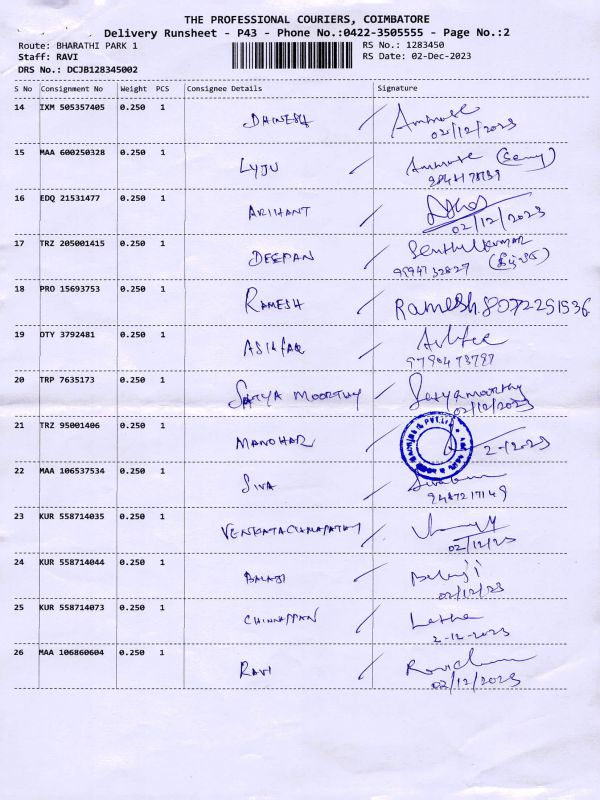 THE PROFESSIONAL COURIERS, COIMBATORE
Delivery Runsheet - P43 - Phone No.:0422-3505555 - Page No.:2
Route: BHARATHI PARK 1 RS No.: 1283450
Staff: RAVI RS Date: 02-Dec-2023
DRS No.: DCJB128345002
S No Consignment No Weight PCS Consignee Details Signature
14 IXM 505357405 0.250 1 DHINESH
02/12/2023
15 MAA 600250328 0.250 1 LYJU
16 EDQ 21531477 0.250 1 ARIHANT
02/12/2023
17 TRZ 205001415 0.250 1 DEEPAN Senthilkumar
18 PRO 15693753 0.250 1 RAMESH Ramesh. 8072251536
19 DTY 3792481 0.250 1 ASHFAQ
20 TRP 7635173 0.250 1 SATYA MOORTHY Satyamoorthy
02/12/2023
21 TRZ 95001406 0.250 1 MANOHAR
22 MAA 106537534 0.250 1 SIVA
23 KUR 558714035 0.250 1 VENKATACHALAPATHY
02/12/23
24 KUR 558714044 0.250 1 BALAJI Balaji
02/12/23
25 KUR 558714073 0.250 1 CHINNAPPAN Latha
2-12-2023
26 MAA 106860604 0.250 1 RAVI
02/12/2023